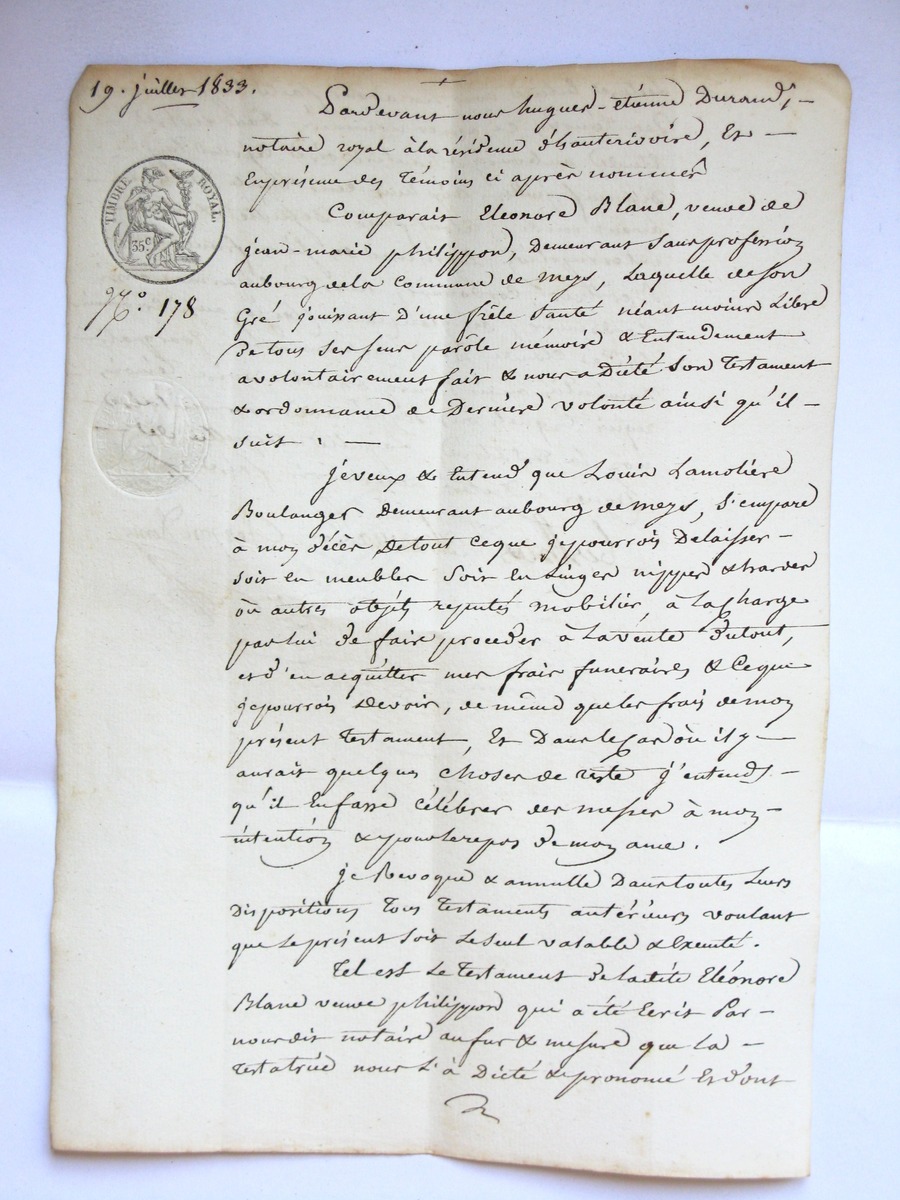 19. juillet 1833.
TIMBRE ROYAL.
35.c
No. 178
Pardevant nous hugues-étienne Durand, -
notaire royal à la résidence d'hauterivoire, Et -
En présence des Témoins ci après nommés
Comparait Eléonore Blanc, veuve de
jean-marie philippon, Demeurant Sans profession
au bourg de la Commune de meys, Laquelle de son
Gré jouissant D'une frêle Santé néant moins Libre
de tous ses sens parôle mémoire & Entendement
a volontairement fait & nous a Dicté Son Testament
& ordonnance de Dernière volonté ainsi qu'il -
suit : -
je veux & Entend que Louis Lamolière
Boulanger Demeurant au bourg de meys, S'empare
à mon décès De tout ce que je pourrois Delaisser -
soit en meubles Soit en Linges nippes & hardes
ou autres objets reputés mobilier, à la Charge
par lui de faire proceder à La vente du tout,
et d'en acquitter mes frais funeraires & Ce que
je pourrois Devoir, de même que les frais de mon
présent Testament, Et Dans le Cas où il y -
aurait quelques Choses de reste j'entends -
qu'il En fasse célébrer des messes à mon -
intention & pour le repos de mon ame.
je Revoque & annulle Dans toutes Leurs
Dispositions Tous Testaments antérieurs voulant
que Le présent Soit Le Seul valable & Executé.
Tel est Le Testament de ladite Eléonore
Blanc veuve philippon qui a été Ecrit Par -
nous dit notaire au fur & mesure que La -
Testatrice nous L'a Dicté & prononcé Et dont